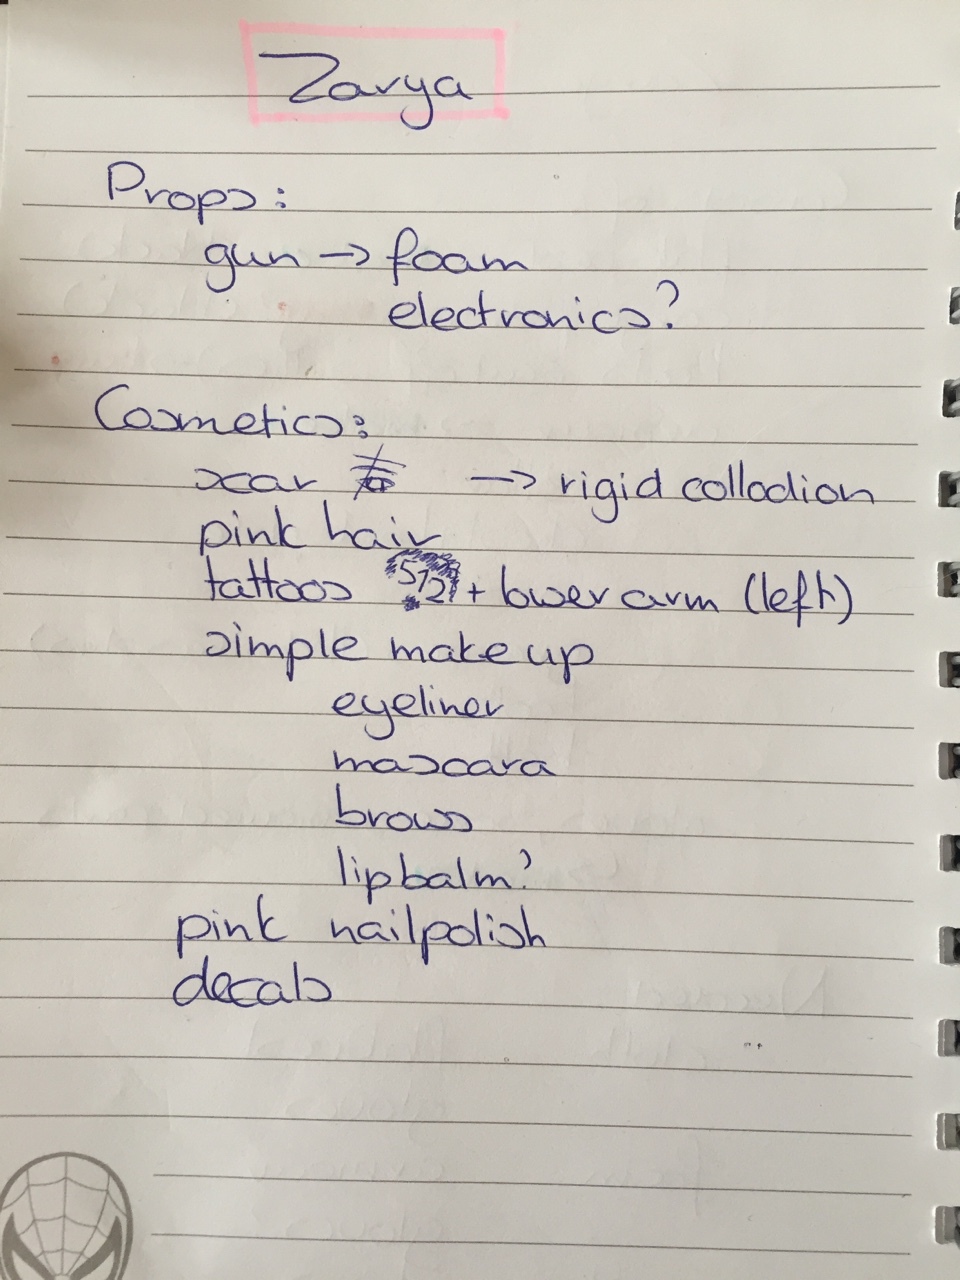 Zarya
Props:
gun → foam
electronics?
Cosmetics:
scar → rigid collodion
pink hair
tattoos 512 + lower arm (left)
simple make up
eyeliner
mascara
brows
lipbalm?
pink nailpolish
decals